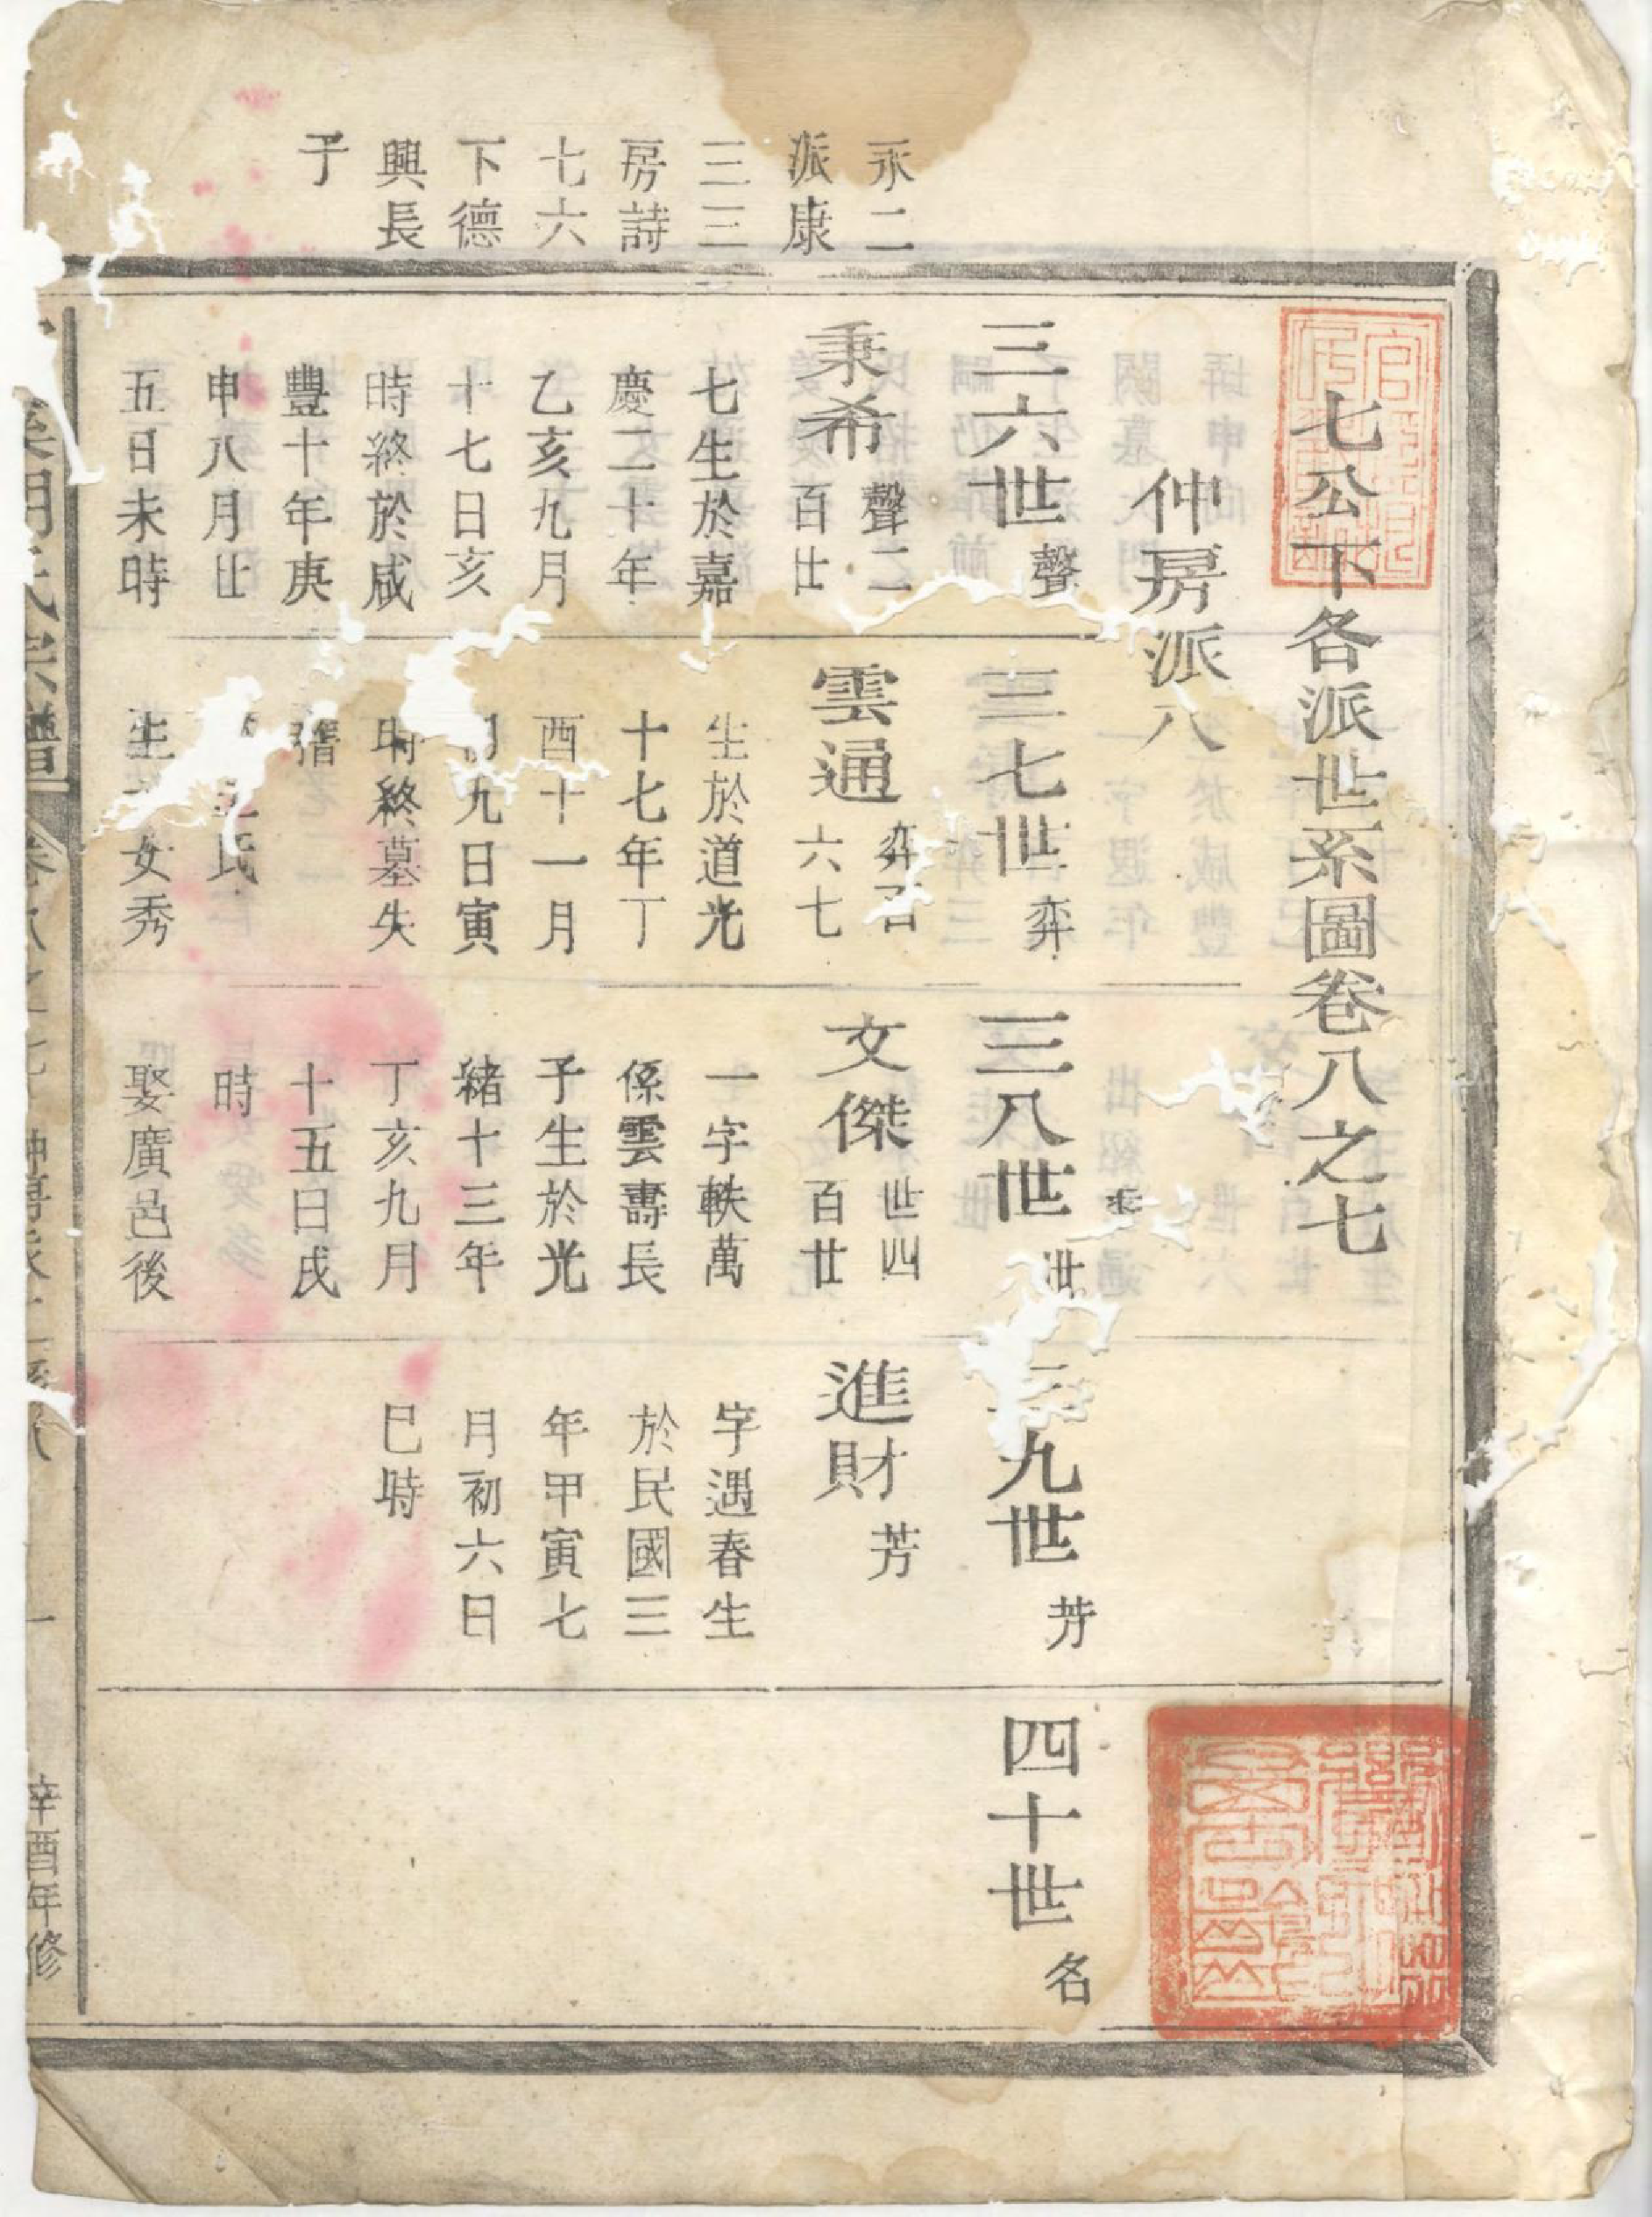 七公下各派世系圖卷八之七
仲房派八
永二
派康
三三
房詩
七六
下德
興長
子
三六世 聲
秉希 聲二
百廿
七生於嘉
慶二十年
乙亥九月
十七日亥
時終於咸
豐十年庚
申八月廿
五日未時
三七世 弈
雲通 弈
六七
生於道光
十七年丁
酉十一月
初九日寅
時終墓失
氏
生 女秀
三八世 世
文傑 世四
百廿
一字軼萬
係雲壽長
子生於光
緒十三年
丁亥九月
十五日戌
時
娶廣邑後
三九世 芳
進財 芳
字遇春生
於民國三
年甲寅七
月初六日
巳時
四十世 名
氏宗譜
一
辛酉年修